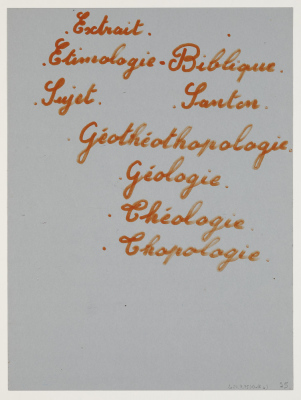 . Extrait .
. Etimologie - Biblique .
. Sujet . . Santon .
. Géothéothopologie .
. Géologie .
. Théologie .
. Thopologie .
25